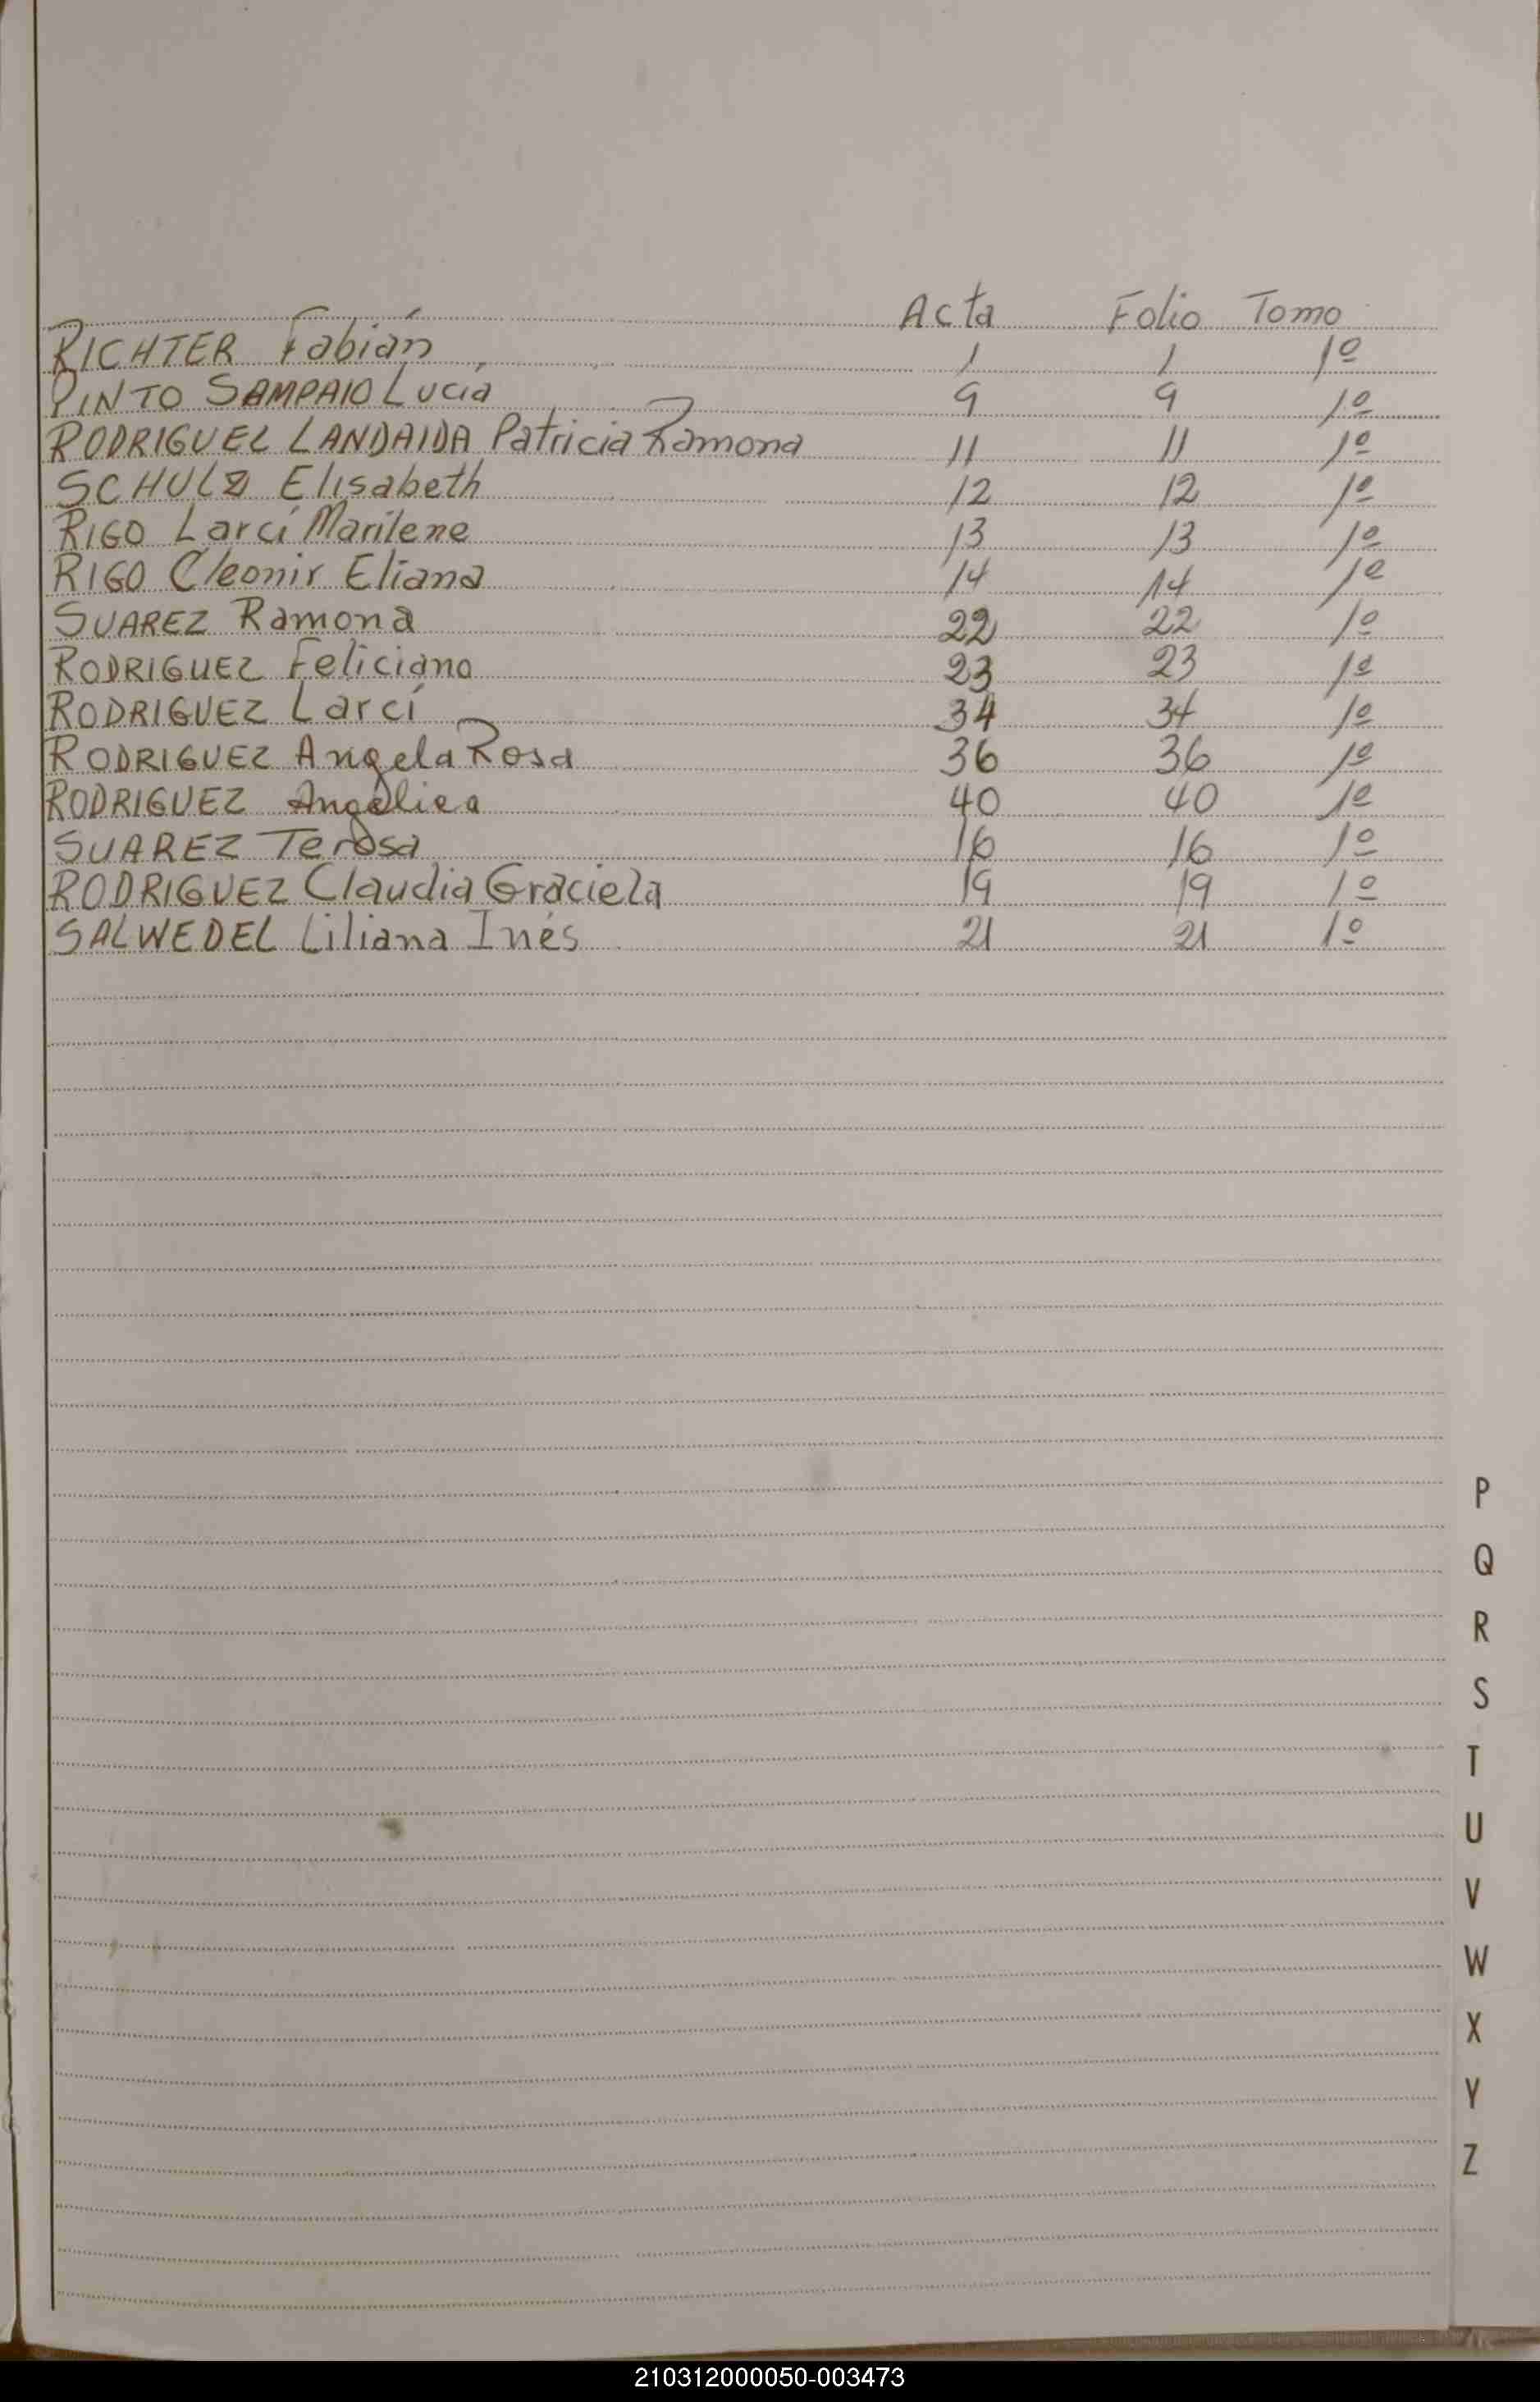 Acta Folio Tomo
RICHTER Fabián 1 1 1º
PINTO SAMPAIO Lucia 9 9 1º
RODRIGUEZ LANDAIDA Patricia Ramona 11 11 1º
SCHULZ Elisabeth 12 12 1º
RIGO Larcí Marilene 13 13 1º
RIGO Cleonir Eliana 14 14 1º
SUAREZ Ramona 22 22 1º
RODRIGUEZ Feliciano 23 23 1º
RODRIGUEZ Larcí 34 34 1º
RODRIGUEZ Angela Rosa 36 36 1º
RODRIGUEZ Angélica 40 40 1º
SUAREZ Teresa 16 16 1º
RODRIGUEZ Claudia Graciela 19 19 1º
SALWEDEL Liliana Inés 21 21 1º
P
Q
R
S
T
U
V
W
X
Y
Z
210312000050-003473